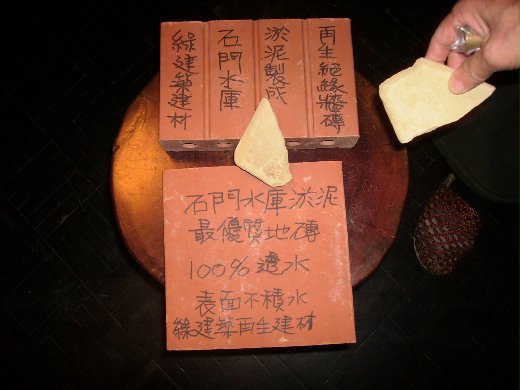 再生絕緣牆磚
淤泥製成
石門水庫
綠建築建材
石門水庫淤泥
最優質地磚
100%透水
表面不積水
綠建築再生建材